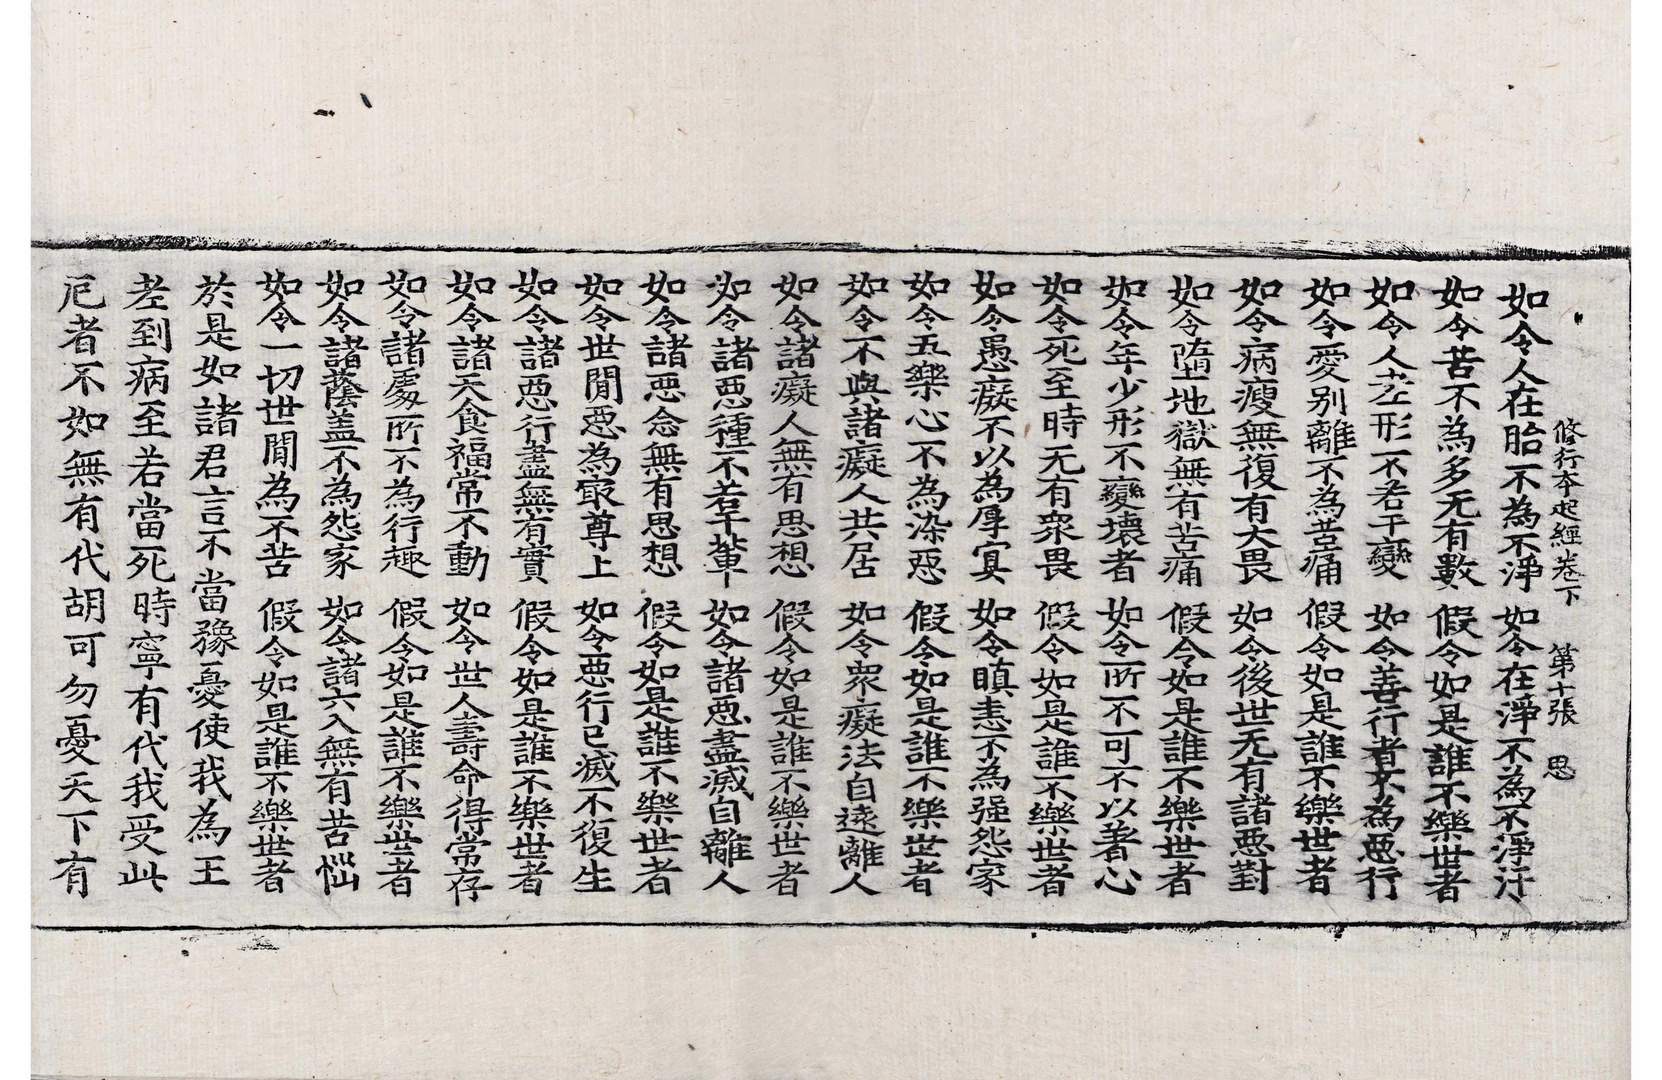 修行本起經卷下　第十張　思
如令人在胎不為不淨　如令在淨不為不淨汙
如令苦不為多无有數　假令如是誰不樂世者
如令人老形不若干變　如令善行者不為惡行
如令愛別離不為苦痛　假令如是誰不樂世者
如令病瘦無復有大畏　如令後世无有諸惡對
如令墮地獄無有苦痛　假令如是誰不樂世者
如令年少形不變壞者　如令所不可不以著心
如令死至時无有衆畏　假令如是誰不樂世者
如令愚癡不以為厚冥　如令瞋恚不為强怨家
如令五樂心不為染惡　假令如是誰不樂世者
如令不與諸癡人共居　如令衆癡法自遠離人
如令諸癡人無有思想　假令如是誰不樂世者
如令諸惡種不若干輩　如令諸惡盡滅自離人
如令諸惡念無有思想　假令如是誰不樂世者
如令世閒惡為㝡尊上　如令惡行已滅不復生
如令諸惡行盡無有實　假令如是誰不樂世者
如令諸天食福常不動　如令世人壽命得常存
如令諸處所不為行趣　假令如是誰不樂世者
如令諸蔭盖不為怨家　如令諸六入無有苦惱
如令一切世閒為不苦　假令如是誰不樂世者
於是如諸君言不當豫憂使我為王
老到病至若當死時寧有代我受此
厄者不如無有代胡可勿憂天下有